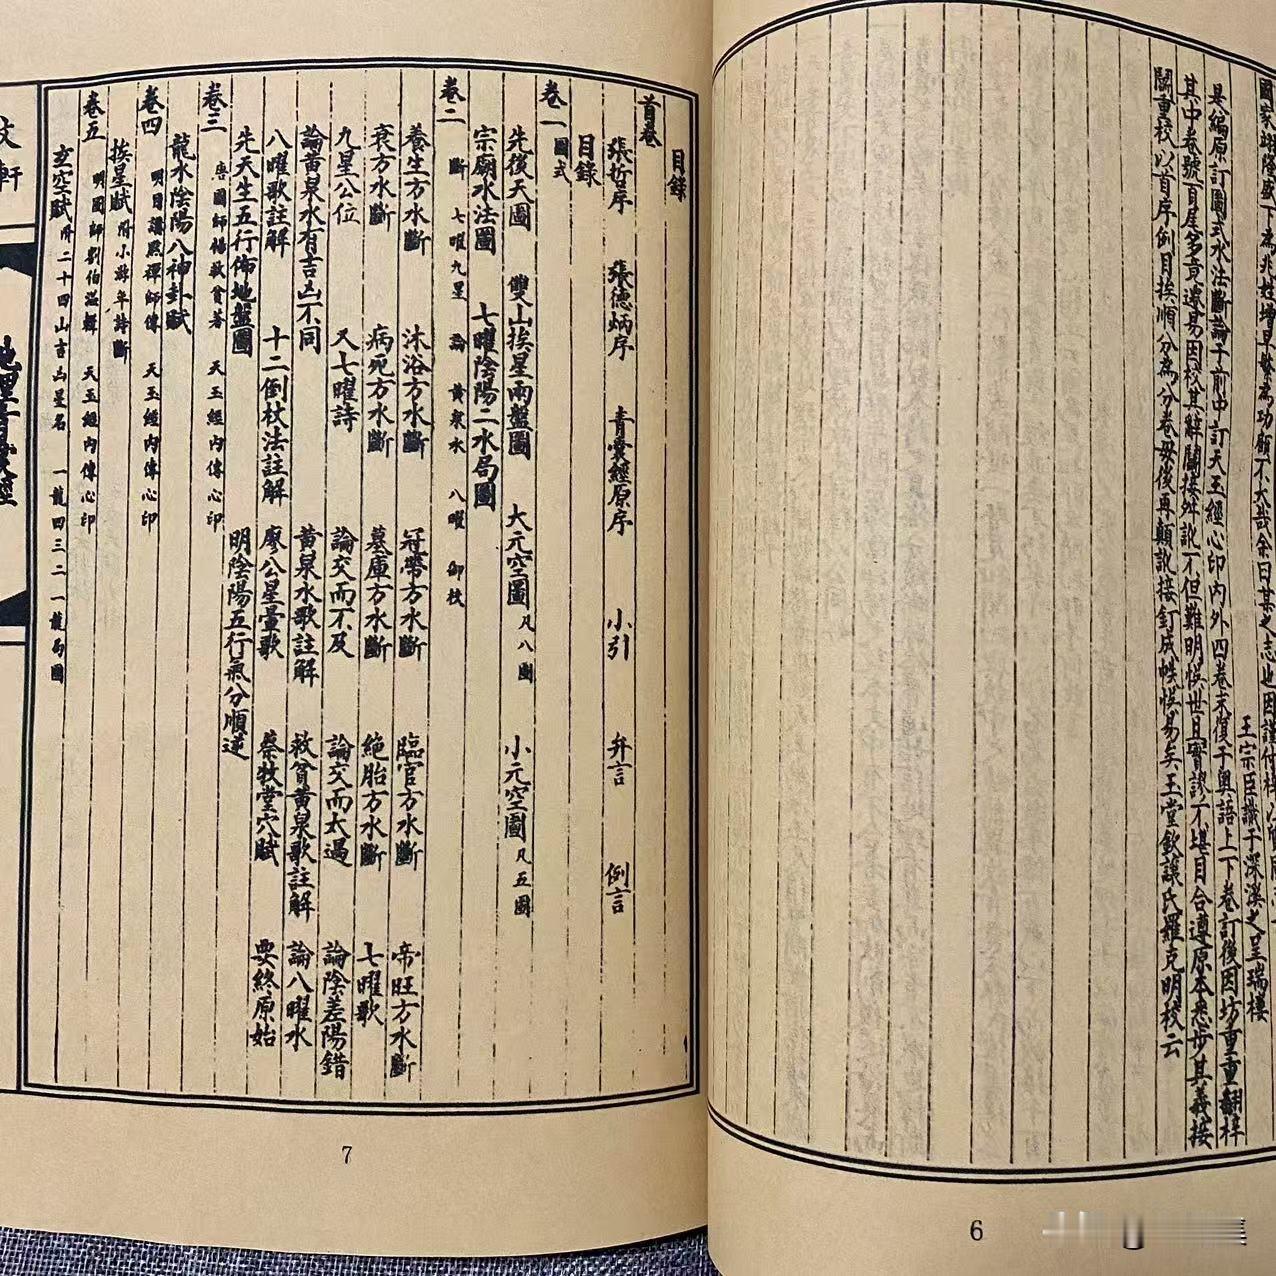 國家
下為兆姓增早繁為功願不大哉余曰某之志也因謹付梓以
王宗臣識于深溪之呈瑞樓
是編原訂圖式水法斷論于前中訂天玉經心印內外四卷末復于奧語上下卷訂後因坊重重翻梓
其中卷號頁尾多竟遺易因校其解關接舛訛不但難明悞世且實謬不堪目合遵原本悉步其義接
關重校以首序例目挨順分為分卷毋後再顛訛接釘成帙悞易矣王堂欽讓氏羅克明校云
6
目錄
首卷
張哲序 張德炳序 青囊經原序 小引 弁言 例言
目錄
卷一 圖式
先後天圖 雙山挨星兩盤圖 大元空圖 凡八圖 小元空圖 凡五圖
宗廟水法圖 七曜陰陽二水局圖
卷二 斷 七曜九星 論 黃泉水 八曜 御枝
養生方水斷 沐浴方水斷 冠帶方水斷 臨官方水斷 帝旺方水斷
衰方水斷 病死方水斷 墓庫方水斷 絶胎方水斷 七曜歌
九星公位 又七曜詩 論交而不及 論交而太過 論陰差陽錯
論黃泉水有吉凶不同 黃泉水歌註解 救貧黃泉歌註解 論八曜水
八曜歌註解 十二倒杖法註解 廖公星暈歌 蔡牧堂穴賦 要終原始
先天生五行佈地盤圖 明陰陽五行氣分順逆
卷三 唐國師楊救貧著 天玉經內傳心印
龍水陰陽八神卦賦
卷四 明目講照禪師傳 天玉經內傳心印
挨星賦 附小游年詩斷
卷五 明國師劉伯溫輯 天玉經內傳心印
玄空賦 附二十四山吉凶星名 一龍四三二一龍局圖
地理青囊經
軒
7